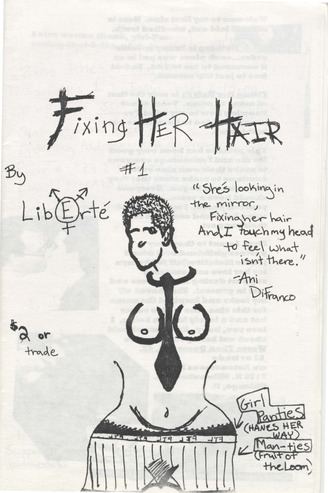 Fixing HER HAIR
#1
By
LibErté
"She's looking in
the mirror,
Fixing her hair
And I touch my head
to feel what
isnt there."
-Ani
DiFranco
$2 or
trade
Girl
Panties
(HANES HER
WAY)
Man-ties
(fruit of
the Loom)